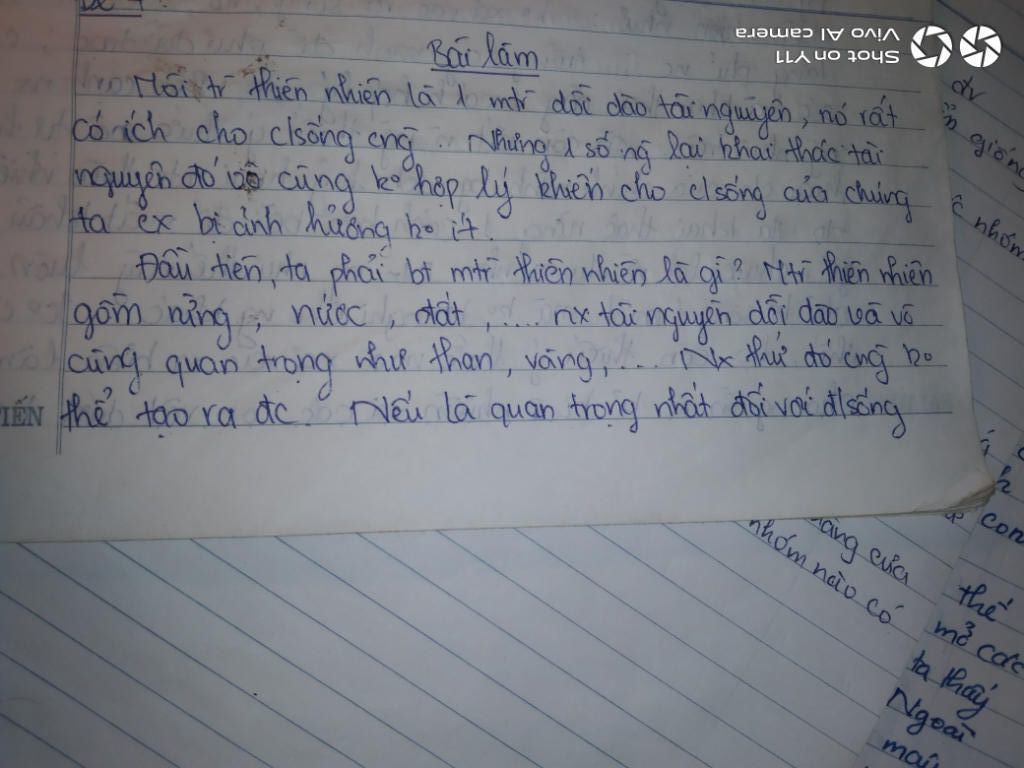 Bài làm
Môi tr thiên nhiên là 1 mtr dồi dào tài nguyên, nó rất
có ích cho c/sống cng. Nhưng 1 số ng lại khai thác tài
nguyên đó vô cùng ko hợp lý khiến cho c/sống của chúng
ta cx bị ảnh hưởng ko ít.
Đầu tiên, ta phải bt mtr thiên nhiên là gì? Mtr thiên nhiên
gồm rừng, nước, đất, .... nx tài nguyên dồi dào và vô
cùng quan trọng như than, vàng, ... Nx thứ đó cng ko
thể tạo ra đc. Nếu là quan trọng nhất đối với đ/sống
IẾN
Shot on Y11
Vivo AI camera
giống
nhóm
con
của
nhóm nào có
thế
mở các
ta thấy
Ngoài